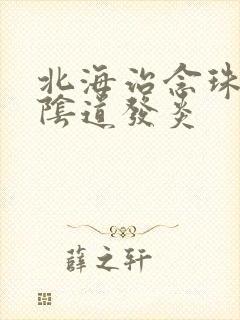 北海治念珠
陰道發炎
薛之轩